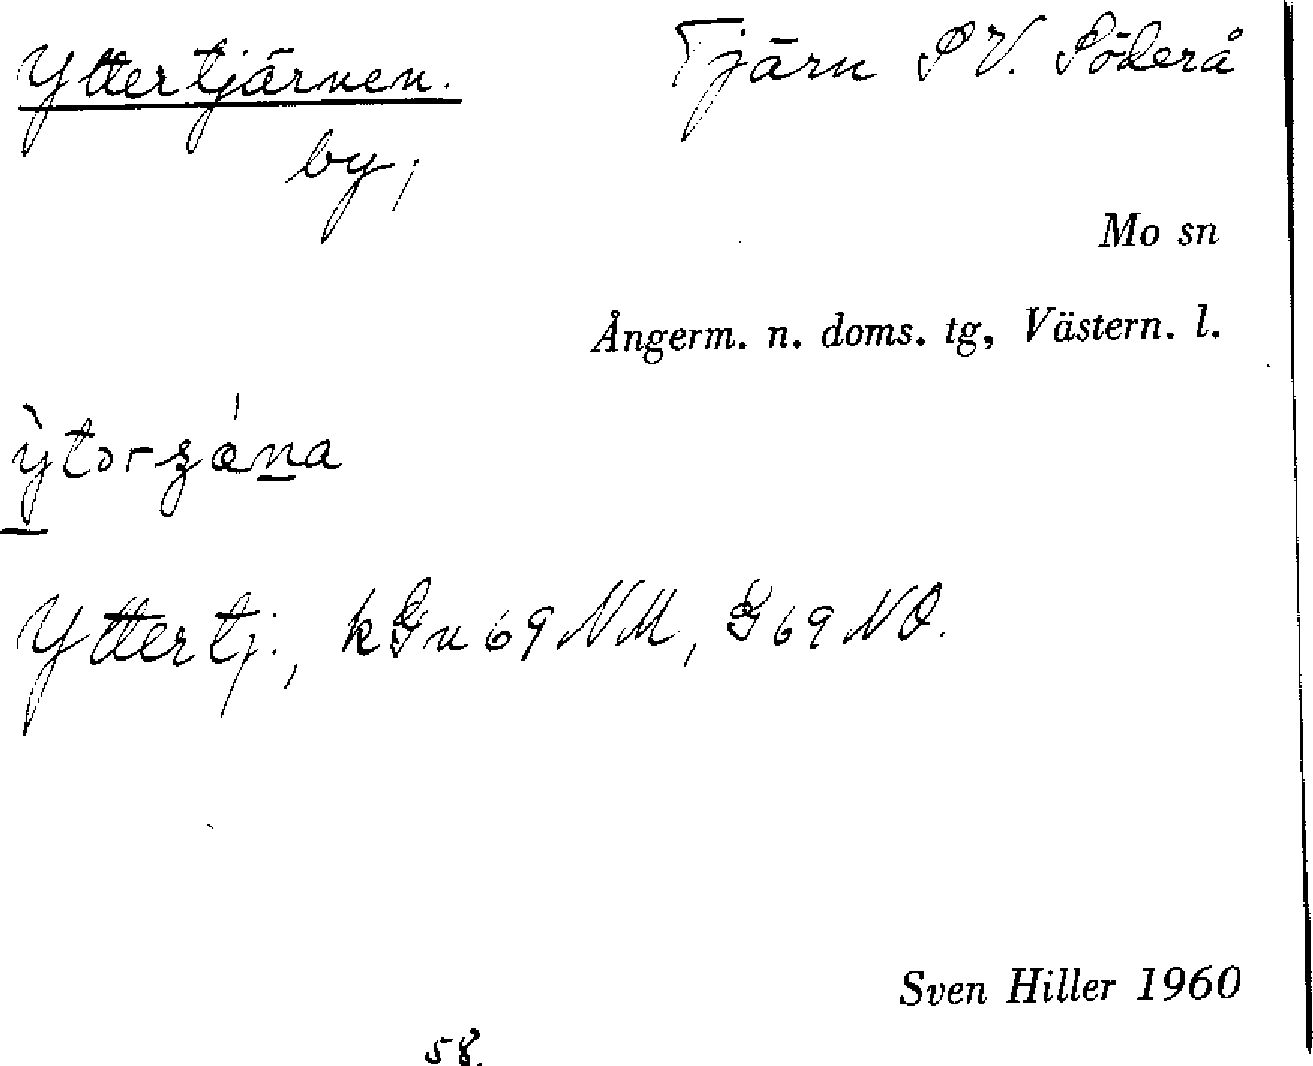 Yttertjärnen.
by;
Tjärn SV. Söderå
Mo sn
Ångerm. n. doms. tg, Västern. l.
Yttertj., kGn 69 NM, G 69 NO.
Sven Hiller 1960
58.